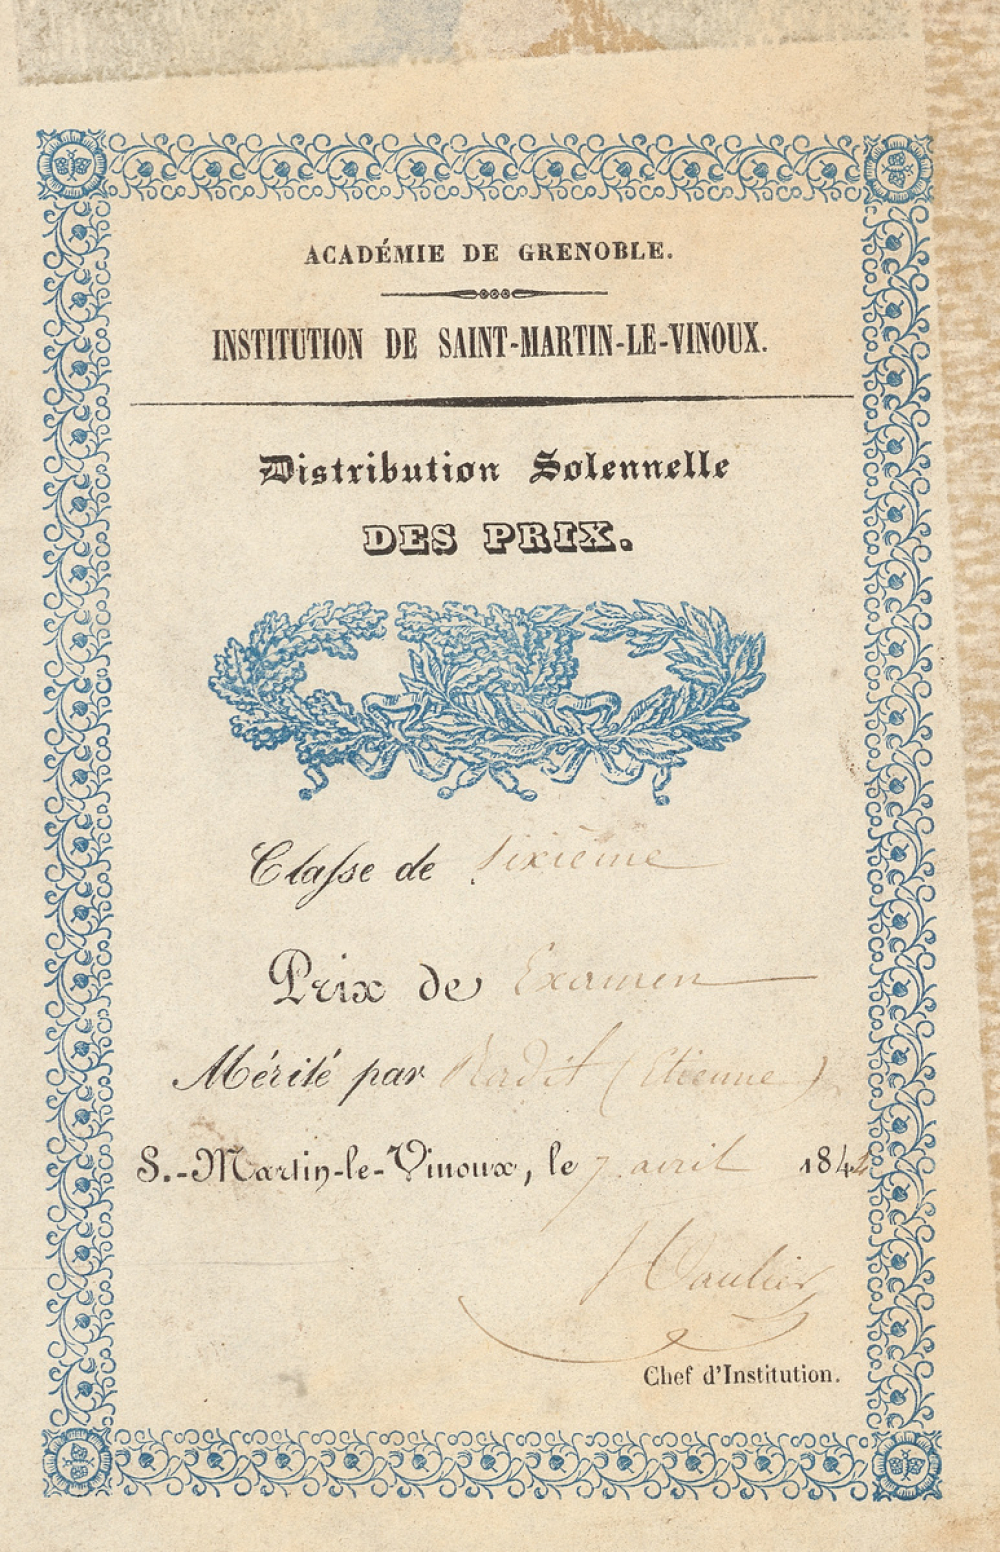 ACADÉMIE DE GRENOBLE.
INSTITUTION DE SAINT-MARTIN-LE-VINOUX.
Distribution Solennelle
DES PRIX.
Classe de Sixième
Prix de Examen
Mérité par (Etienne)
S.-Martin-le-Vinoux, le 7 avril 1842
Chef d'Institution.